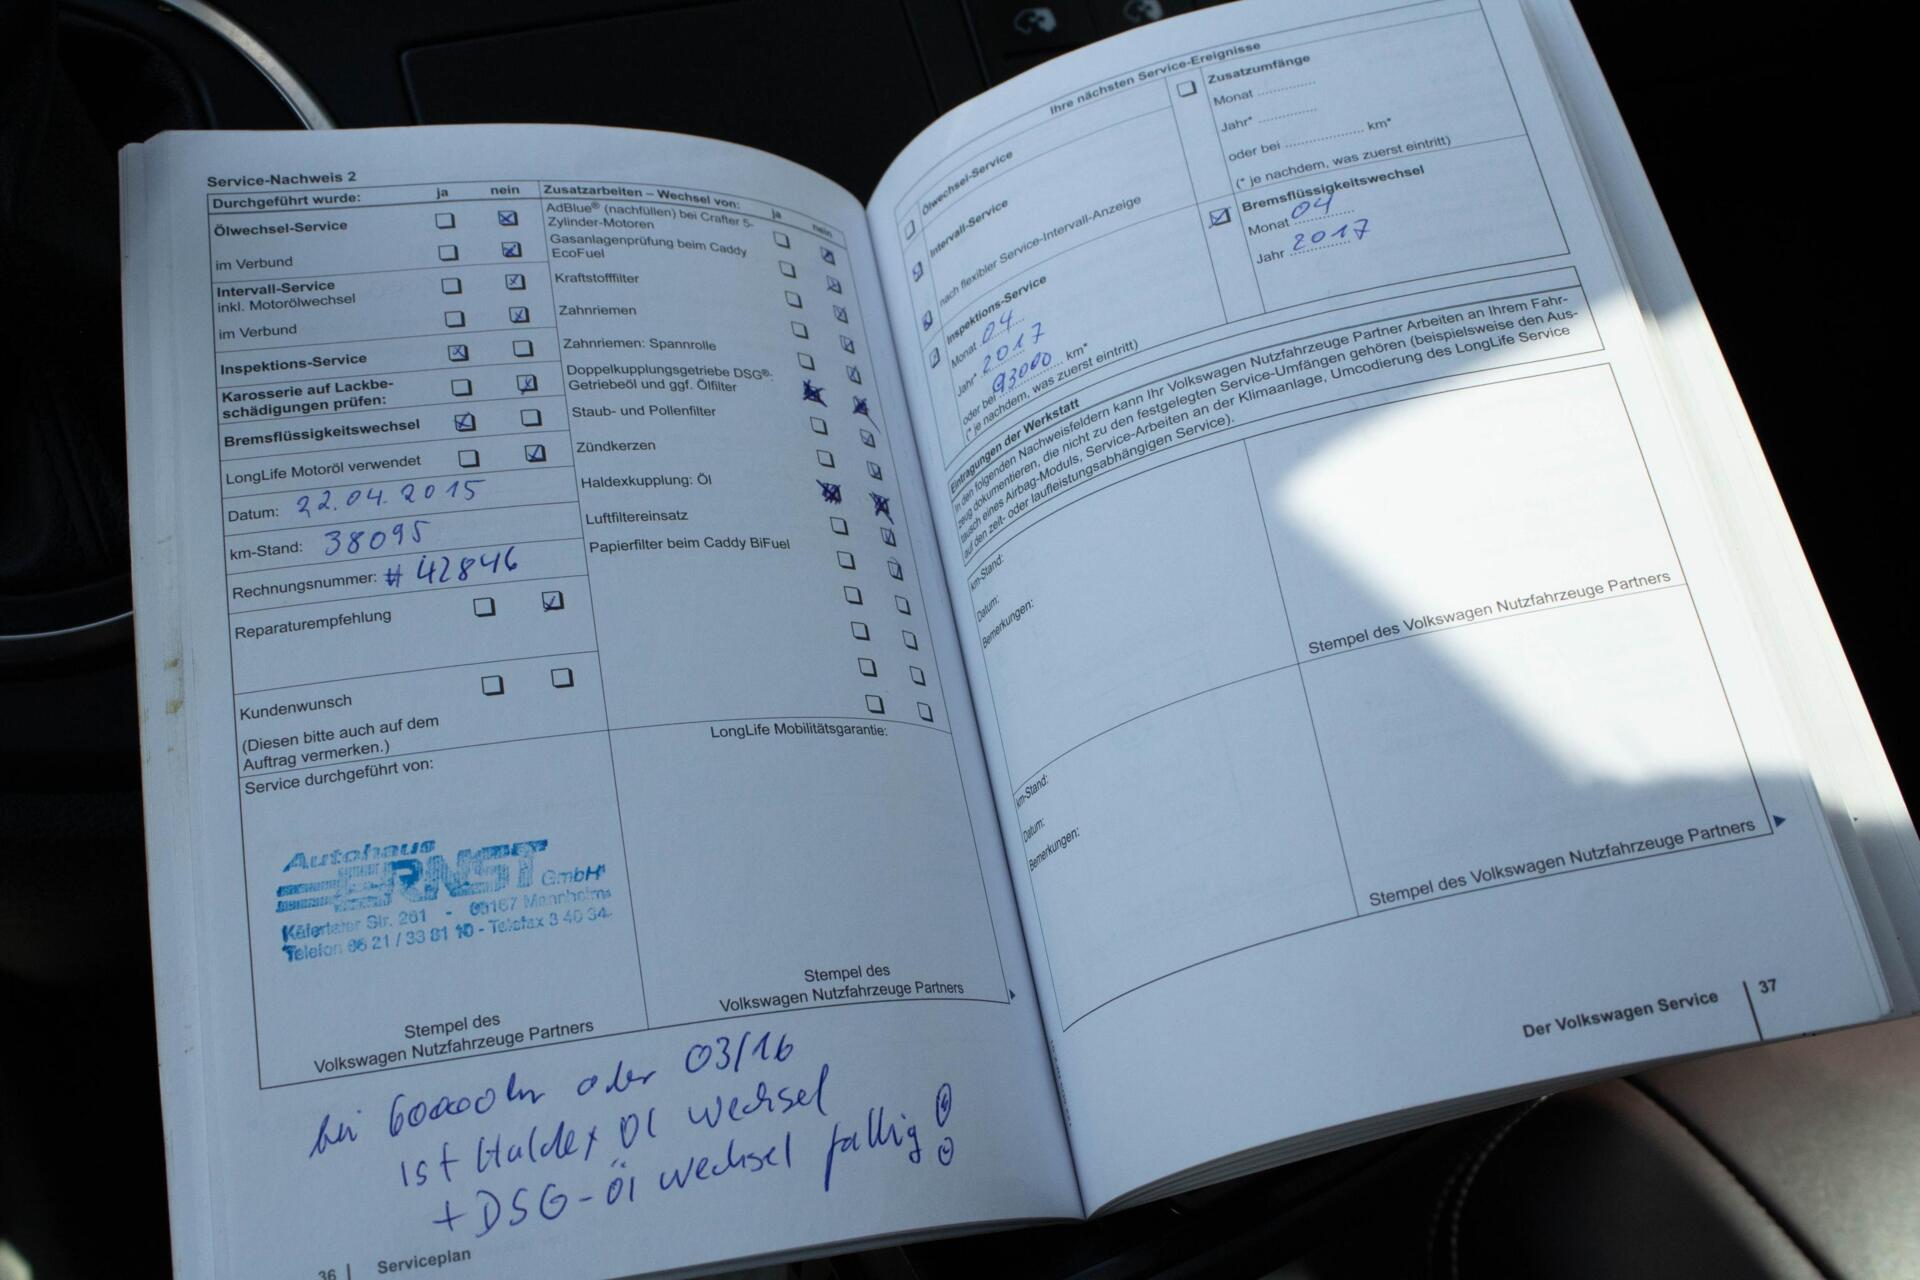 Service-Nachweis 2
Durchgeführt wurde: ja nein
Ölwechsel-Service
im Verbund
Intervall-Service
inkl. Motorölwechsel
im Verbund
Inspektions-Service
Karosserie auf Lackbe-
schädigungen prüfen:
Bremsflüssigkeitswechsel
LongLife Motoröl verwendet
Datum: 22.04.2015
km-Stand: 38095
Rechnungsnummer: # 42846
Reparaturempfehlung
Kundenwunsch
(Diesen bitte auch auf dem
Auftrag vermerken.)
Service durchgeführt von:
Autohaus
ERNST GmbH
Käfertaler Str. 261 - 68167 Mannheim
Telefon 06 21 / 33 81 10 - Telefax 3 40 34
Stempel des
Volkswagen Nutzfahrzeuge Partners
Zusatzarbeiten – Wechsel von: ja nein
AdBlue® (nachfüllen) bei Crafter 5-
Zylinder-Motoren
Gasanlagenprüfung beim Caddy
EcoFuel
Kraftstofffilter
Zahnriemen
Zahnriemen: Spannrolle
Doppelkupplungsgetriebe DSG®:
Getriebeöl und ggf. Ölfilter
Staub- und Pollenfilter
Zündkerzen
Haldexkupplung: Öl
Luftfiltereinsatz
Papierfilter beim Caddy BiFuel
LongLife Mobilitätsgarantie:
Stempel des
Volkswagen Nutzfahrzeuge Partners
bei 60000km oder 03/16
ist Haldex Öl wechsel
+ DSG-Öl wechsel fällig!!
36 | Serviceplan
Ihre nächsten Service-Ereignisse
Ölwechsel-Service
Intervall-Service
nach flexibler Service-Intervall-Anzeige
Inspektions-Service
Monat 04
Jahr* 2017
oder bei 93000 km*
(* je nachdem, was zuerst eintritt)
Zusatzumfänge
Monat
Jahr*
oder bei km*
(* je nachdem, was zuerst eintritt)
Bremsflüssigkeitswechsel
Monat 04
Jahr 2017
Eintragungen der Werkstatt
In den folgenden Nachweisfeldern kann Ihr Volkswagen Nutzfahrzeuge Partner Arbeiten an Ihrem Fahr-
zeug dokumentieren, die nicht zu den festgelegten Service-Umfängen gehören (beispielsweise den Aus-
tausch eines Airbag-Moduls, Service-Arbeiten an der Klimaanlage, Umcodierung des LongLife Service
auf den zeit- oder laufleistungsabhängigen Service).
km-Stand:
Datum:
Bemerkungen:
Stempel des Volkswagen Nutzfahrzeuge Partners
km-Stand:
Datum:
Bemerkungen:
Stempel des Volkswagen Nutzfahrzeuge Partners
Der Volkswagen Service | 37